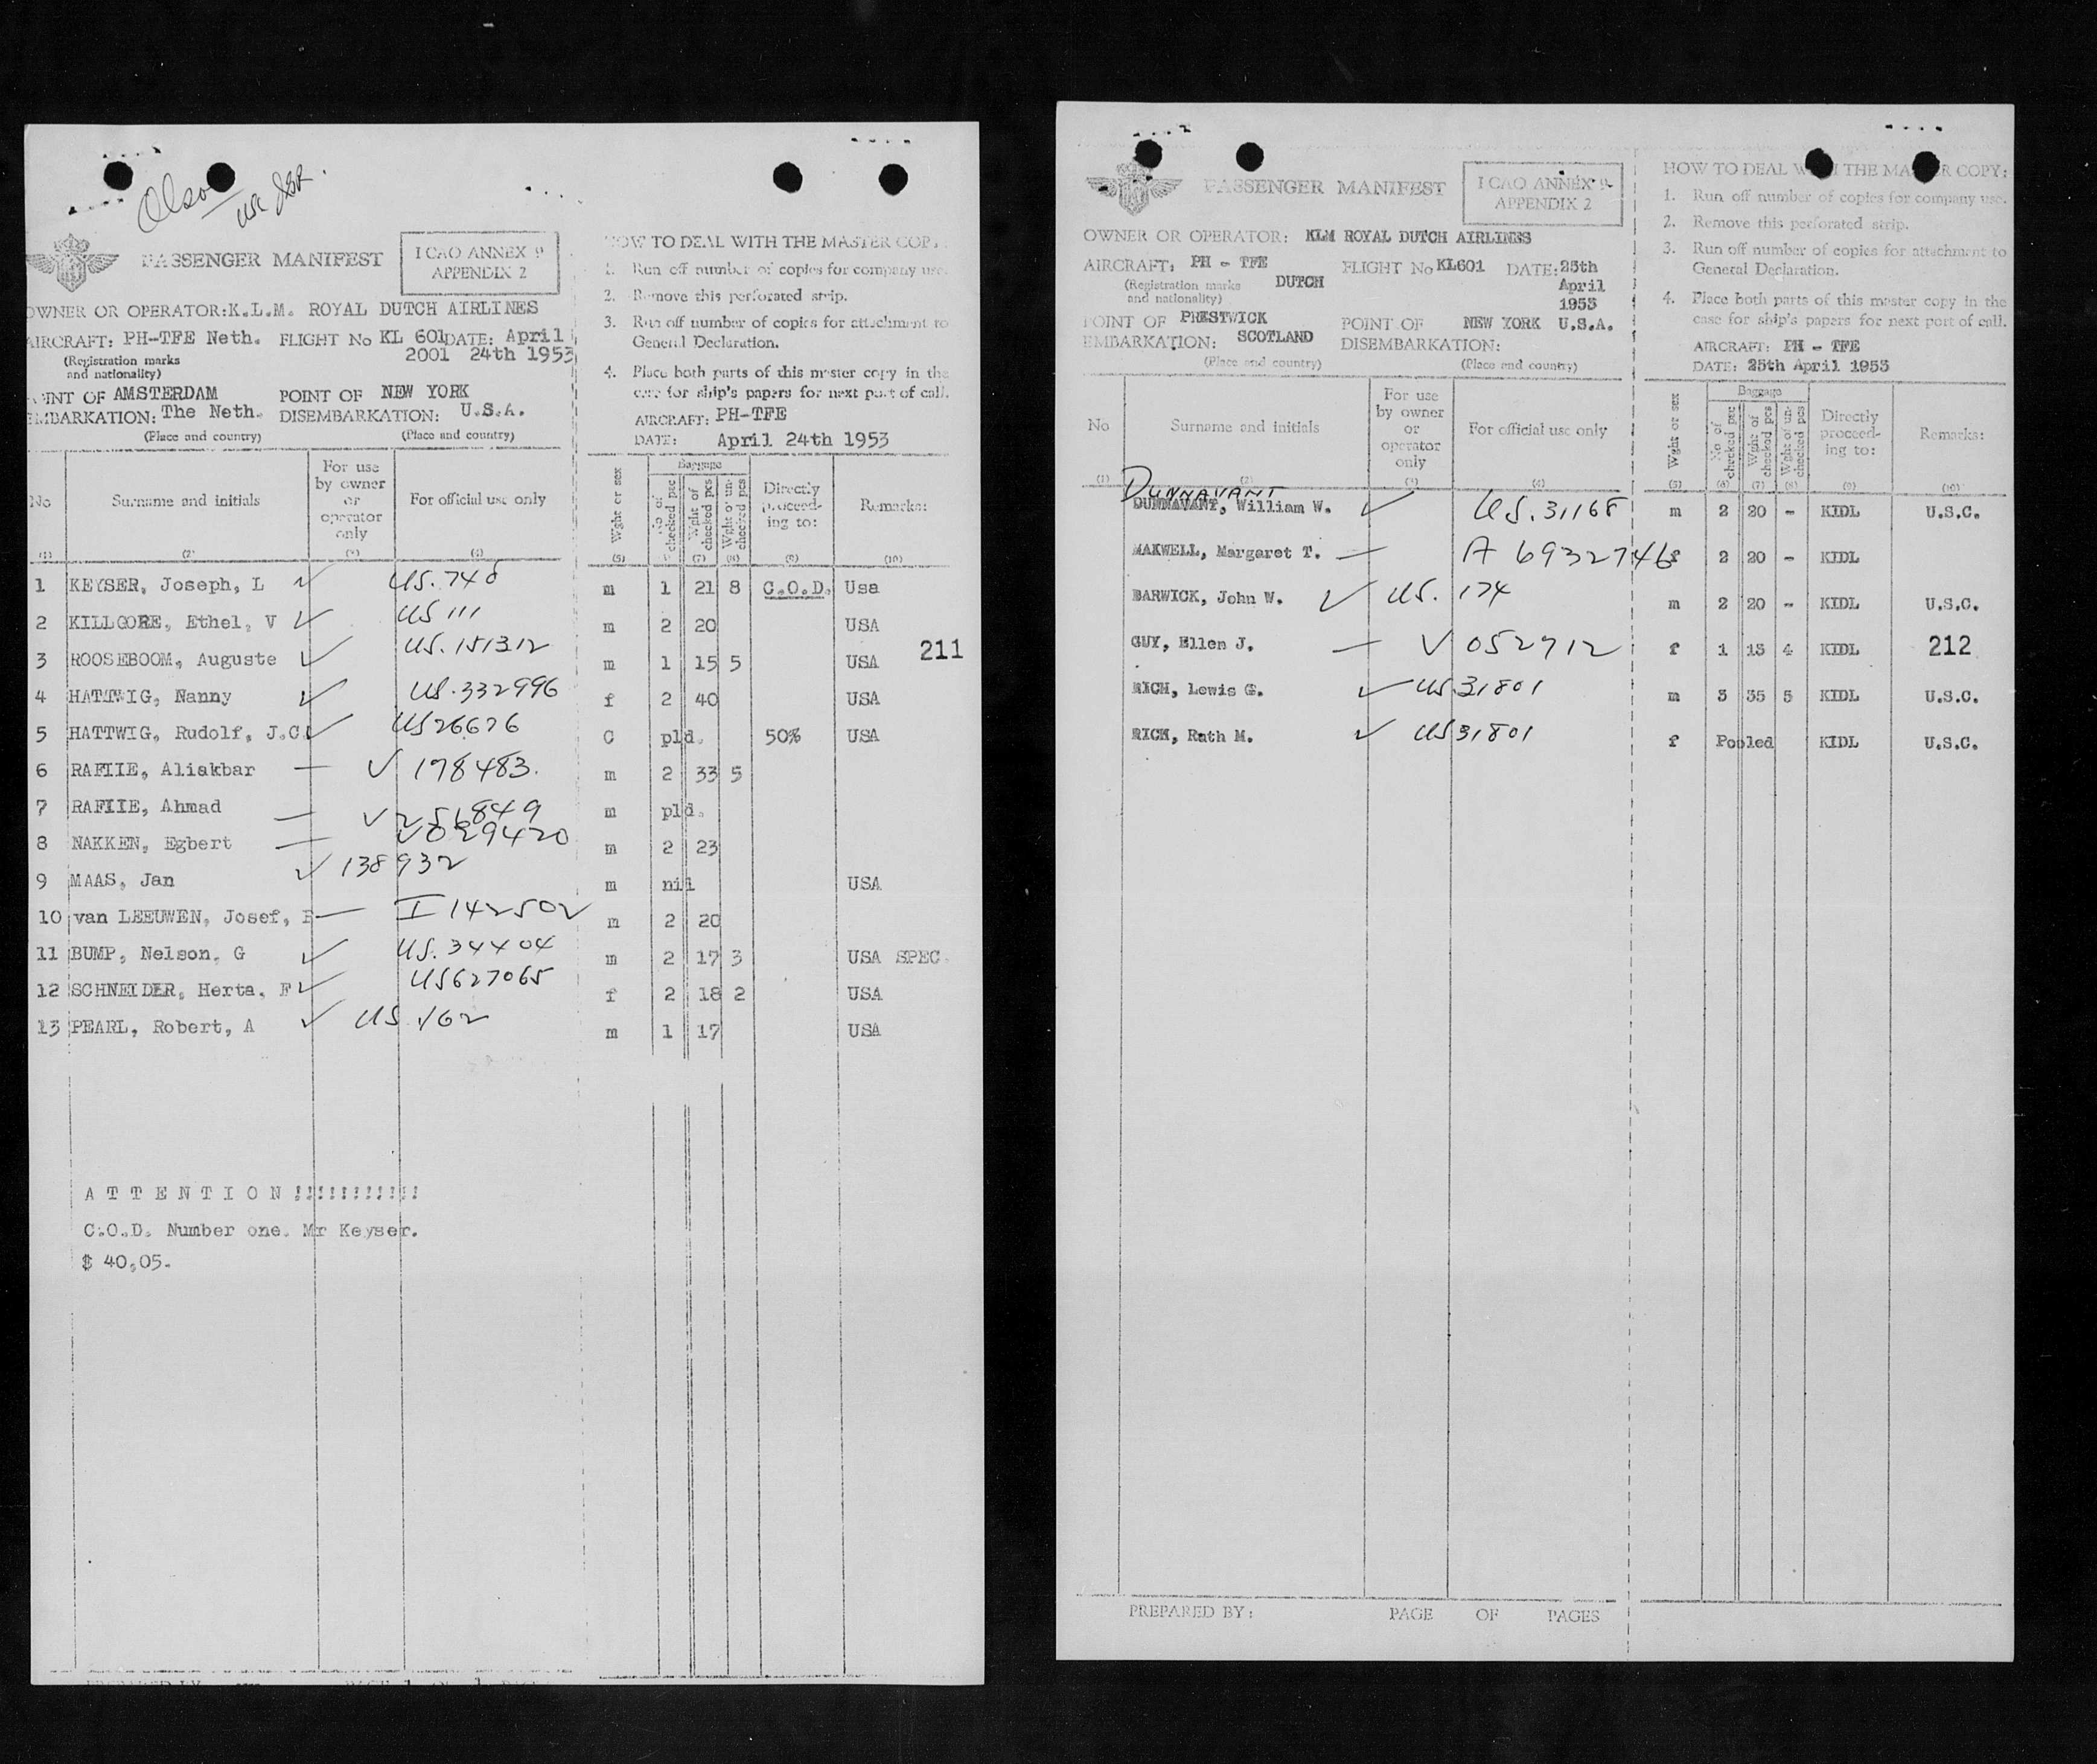 Olson
usc JSR.
PASSENGER MANIFEST
I CAO ANNEX 9
APPENDIX 2
OWNER OR OPERATOR: K.L.M. ROYAL DUTCH AIRLINES
AIRCRAFT: PH-TFE Neth. FLIGHT No KL 601 DATE: April
(Registration marks 2001 24th 1953
and nationality)
POINT OF AMSTERDAM POINT OF NEW YORK
EMBARKATION: The Neth. DISEMBARKATION: U.S.A.
(Place and country) (Place and country)
HOW TO DEAL WITH THE MASTER COPY:
1. Run off number of copies for company use.
2. Remove this perforated strip.
3. Run off number of copies for attachment to
General Declaration.
4. Place both parts of this master copy in the
case for ship's papers for next port of call.
AIRCRAFT: PH-TFE
DATE: April 24th 1953
No Surname and initials For use by owner or operator only For official use only Wght or sex Baggage No of checked pcs Wght of checked pcs Wght of un-checked pcs Directly proceed-ing to: Remarks:
(1) (2) (3) (4) (5) (6) (7) (8) (9) (10)
1 KEYSER, Joseph, L ✓ US. 748 m 1 21 8 C.O.D. Usa
2 KILLGORE, Ethel, V ✓ US 111 m 2 20 USA
3 ROOSEBOOM, Auguste ✓ US. 151312 m 1 15 5 USA 211
4 HATTWIG, Nanny ✓ US. 332996 f 2 40 USA
5 HATTWIG, Rudolf, J.C. ✓ US26676 C pld. 50% USA
6 RAFIIE, Aliakbar — V 178483. m 2 33 5
7 RAFIIE, Ahmad — V 251849 m pld.
8 NAKKEN, Egbert — V 029420 m 2 23
9 MAAS, Jan ✓ 138932 m nil USA
10 van LEEUWEN, Josef, — I 142502 m 2 20
11 BUMP, Nelson, G ✓ US. 34404 m 2 17 3 USA SPEC.
12 SCHNEIDER, Herta, F ✓ US627065 f 2 18 2 USA
13 PEARL, Robert, A ✓ US 162 m 1 17 USA
A T T E N T I O N !!!!!!!!!!!
C.O.D. Number one. Mr Keyser.
$ 40,05.
PASSENGER MANIFEST
I CAO ANNEX 9
APPENDIX 2
OWNER OR OPERATOR: KLM ROYAL DUTCH AIRLINES
AIRCRAFT: PH - TFE FLIGHT No KL601 DATE: 25th
(Registration marks DUTCH April
and nationality) 1953
POINT OF PRESTWICK POINT OF NEW YORK U.S.A.
EMBARKATION: SCOTLAND DISEMBARKATION:
(Place and country) (Place and country)
HOW TO DEAL WITH THE MASTER COPY:
1. Run off number of copies for company use.
2. Remove this perforated strip.
3. Run off number of copies for attachment to
General Declaration.
4. Place both parts of this master copy in the
case for ship's papers for next port of call.
AIRCRAFT: PH - TFE
DATE: 25th April 1953
No Surname and initials For use by owner or operator only For official use only Wght or sex Baggage No of checked pcs Wght of checked pcs Wght of un-checked pcs Directly proceed-ing to: Remarks:
(1) (2) (3) (4) (5) (6) (7) (8) (9) (10)
DUNNAVANT
DUNNAVANT, William W. ✓ US. 31168 m 2 20 - KIDL U.S.C.
MAXWELL, Margaret T. — A 6932746 f 2 20 - KIDL
BARWICK, John W. ✓ US. 174 m 2 20 - KIDL U.S.C.
GUY, Ellen J. — V 052712 f 1 15 4 KIDL 212
RICH, Lewis G. ✓ US 31801 m 3 35 5 KIDL U.S.C.
RICH, Rath M. ✓ US 31801 f Pooled KIDL U.S.C.
PREPARED BY: PAGE OF PAGES